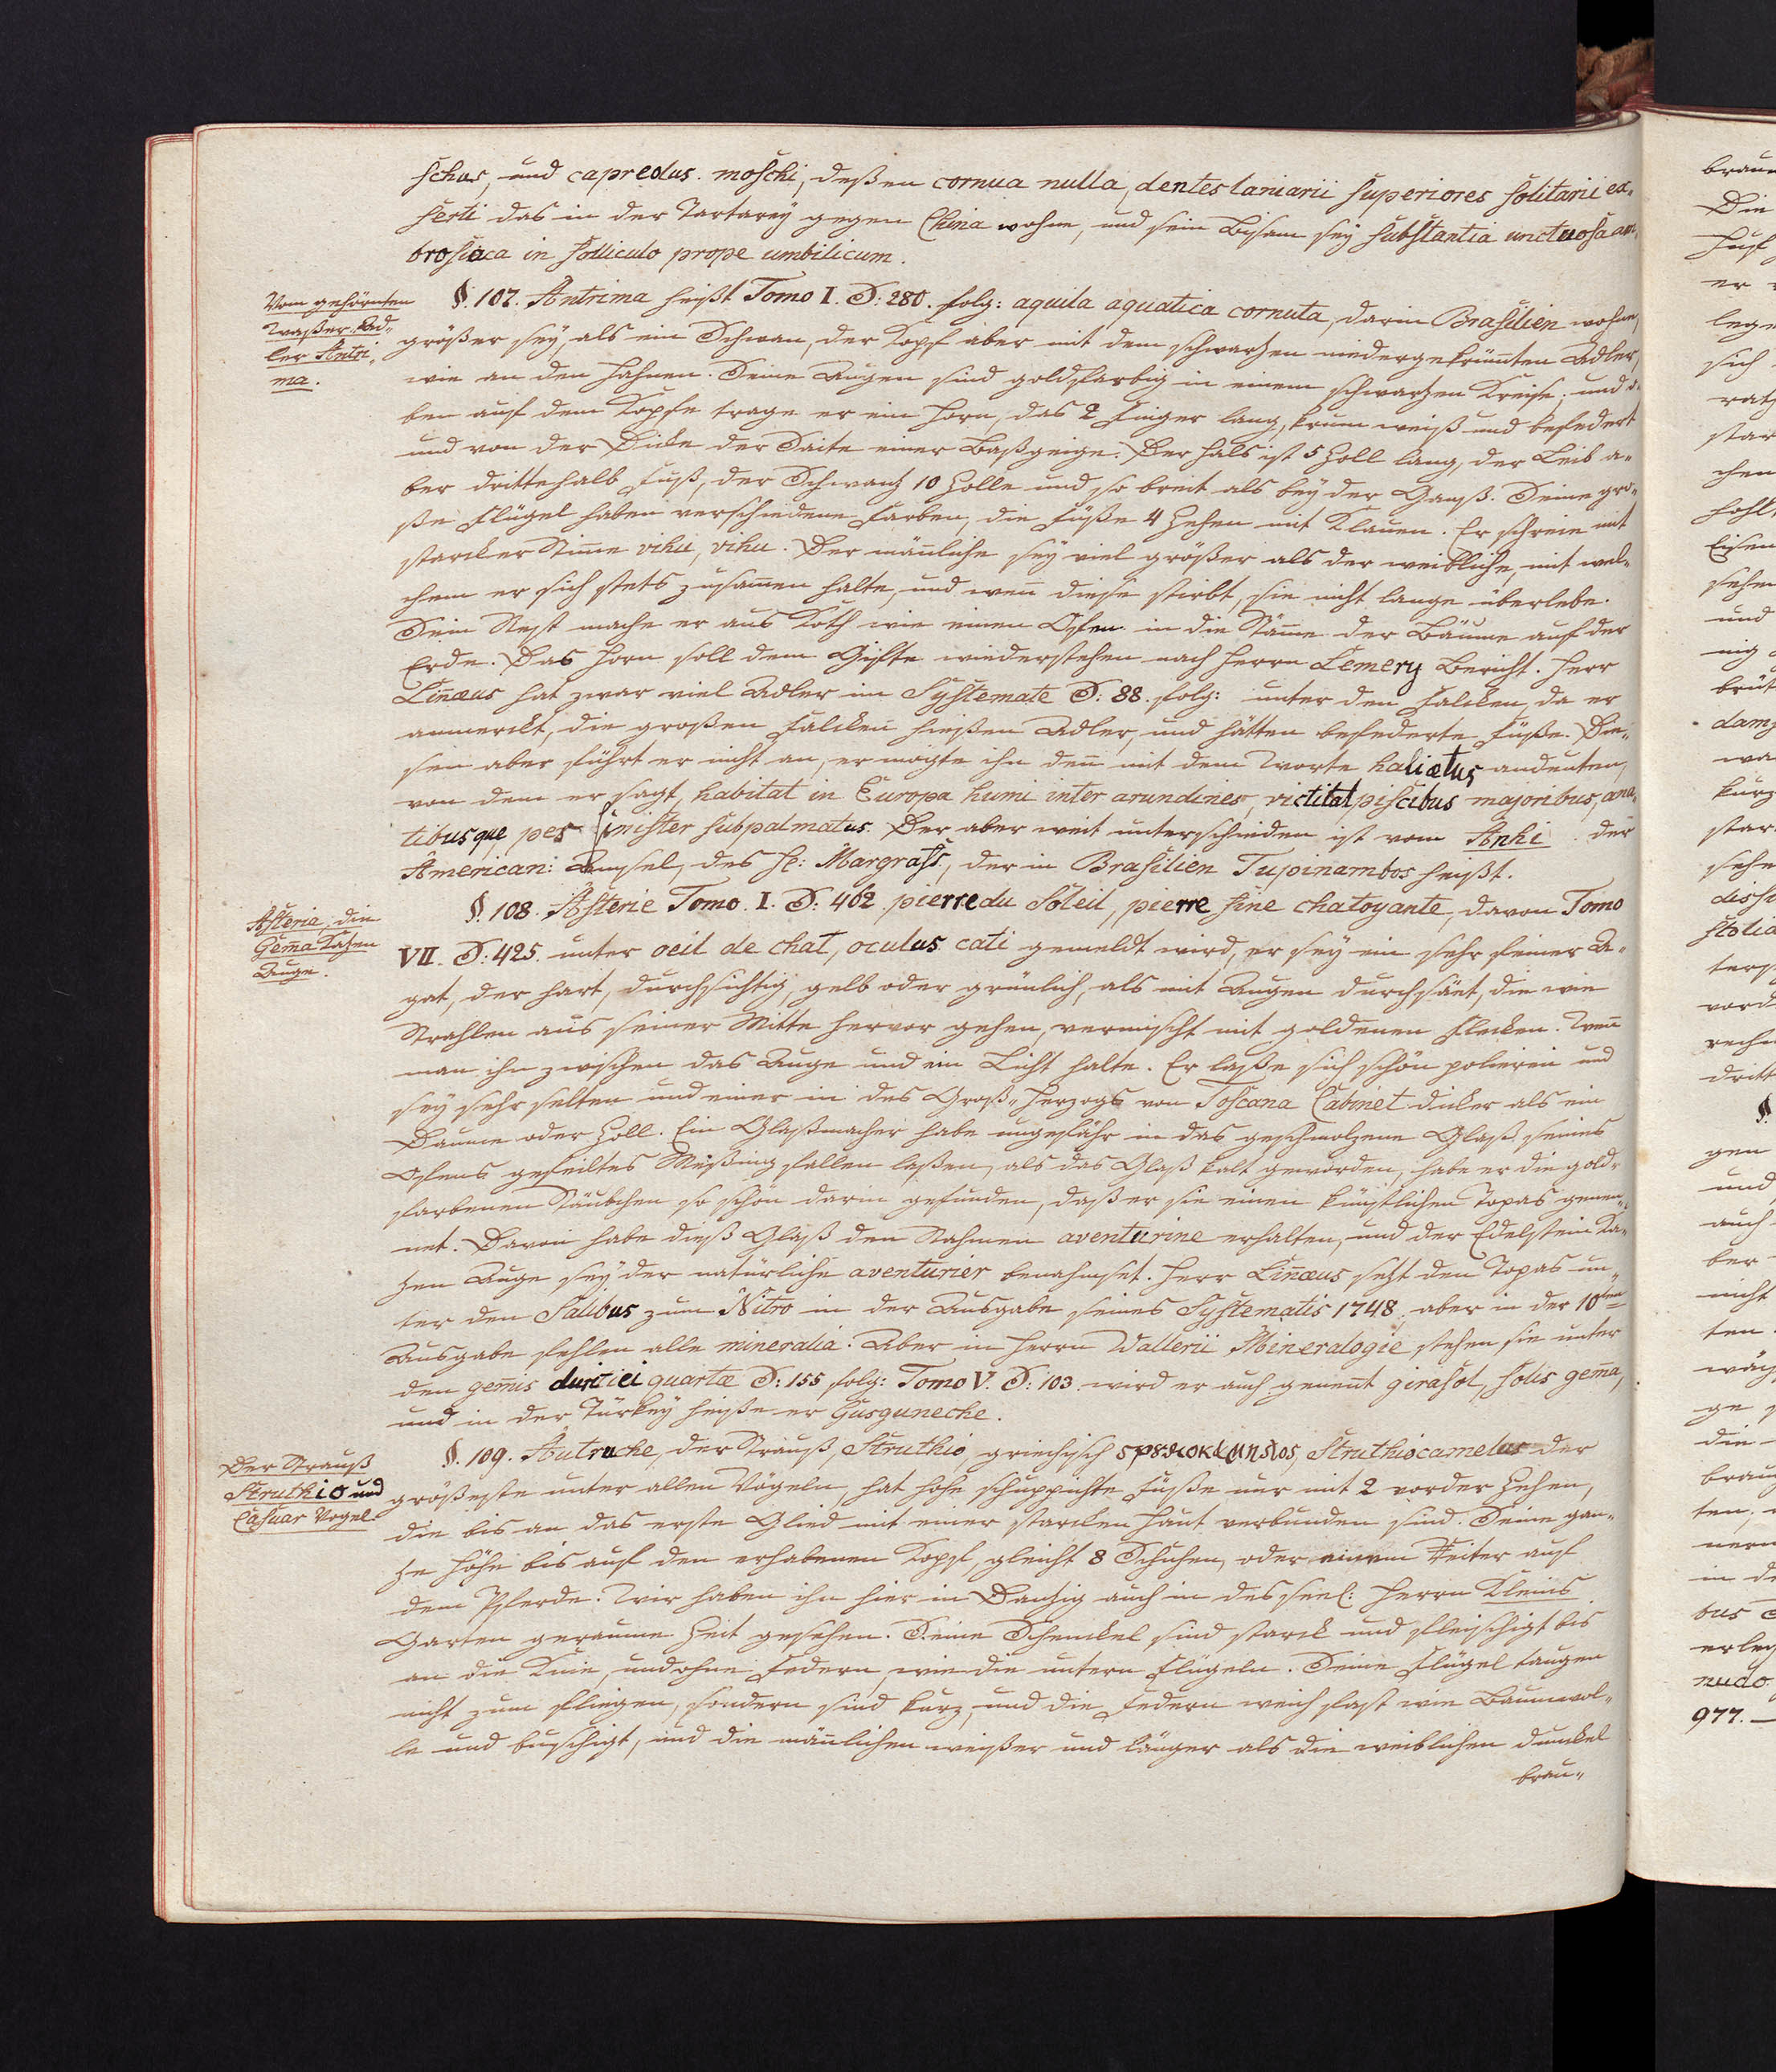 schus, und capreolus moschi, deßen cornua nulla, dentes laniarii superiores solitarii ex„
serti das in der Tartarey gegen China wohne, und sein Bisam sey substantia unctuosa am„
brosiaca in folliculo prope umbilicum.
Vom gehörnten
Waßer Ad„
ler Antri„
ma.
§. 107. Antrima heißt Tomo I. S: 280. folg: aquila aquatica cornuta, darin Brasilien wohne,
größer sey, als ein Schwan, der Kopf aber mit dem schwartzen niedergekrümten Adler,
wie an den Hahnen. Seine Augen sind goldfarbig in einem schwartzen Kreise; und o„
ben auf dem Kopfe trage er ein Horn, das 2 Finger lang, krum weiß und befedert
und von der Dicke der Saite einer Baßgeige. Der Hals ist 5 Zoll lang, der Leib a„
ber drittehalb Fuß, der Schwantz 10 Zolle und so breit als bey der Ganß. Seine gro„
ße Flügel haben verschiedene Farben, die Füße 4 Zehen mit Klauen. Er schreie mit
starcker Stim̄e vihu, vihu. Der män̄liche sey viel größer als der weibliche, mit wel„
chem er sich stets zusam̄en halte, und wen̄ diese stirbt, sie nicht lange überlebe.
Sein Nest mache er aus Koth wie einen Ofen in die Stäm̄e der Bäume auf der
Erde. Das Horn soll dem Gifte wiederstehen nach Herrn Lemery Bericht. Herr
Lin̄æus hat zwar viel Adler im Systemate S: 88. folg: unter den Falcken, da er
anmerckt, die großen Falcken hießen Adler, und hätten befederte Füße. Die„
sen aber führt er nicht an, er mögte ihn den̄ mit dem Worte haliætus andeuten,
von dem er sagt, habitat in Europa humi inter arundines, victitat piscibus majoribus, ana„
tibusque pes sinister subpalmatus. Der aber weit unterschieden ist vom Anhi der
American: Amsel, des H: Margrafs, der in Brasilien Tupinambos heißt.
Asteria, die
Gem̄a Katzen
Auge.
§. 108. Asterie Tomo. I. S: 462 pierre du Soleil, pierre fine chatoyante, davon Tomo
VII. S: 425. unter oeil de chat, oculus cati gemeldt wird, er sey ein sehr feiner A„
gat, der hart, durchsichtig, gelb oder grünlich, als mit Augen durchsäet, die wie
Strahlen aus seiner Mitte hervor gehen, vermischt mit goldenen Flecken. Wen̄
man ihn zwischen das Auge und ein Licht halte. Er laße sich schön polieren und
sey sehr selten und einer in des Groß„Herzogs von Toscana Cabinet dicker als ein
Daume oder Zoll. Ein Glaßmacher habe ungefähr in das geschmolzene Glaß seines
Ofens gefeiltes Meßing fallen laßen, als das Glaß kalt geworden, habe er die gold„
farbenen Stäubchen so schön darin gefunden, daß er sie einen künstlichen Topas genen„
net. Davon habe dieß Glaß den Nahmen aventurine erhalten, und der Edelstein Ka„
tzen Auge sey der natürliche aventurier benahmset. Herr Lin̄æus setzt den Topas un„
ter den Salibus zum Nitro in der Ausgabe seines Systematis 1748, aber in der 10ten
Ausgabe fehlen alle mineralia. Aber in Herrn Wallerii Mineralogie stehen sie unter
den gem̄is duritiei quartæ S: 155 folg: Tomo V. S: 103 wird er auch genen̄t girasol, solis gem̄a,
und in der Türkey heiße er Gusguneche.
Der Strauß
Struthio und
Casuar Vogel.
§. 109. Autruche, der Strauß, Struthio, griechisch Struthiocamelus der
größeste unter allen Vögeln, hat hohe schuppichte Füße nur mit 2 vorder Zehen,
die bis an das erste Glied mit einer starcken Haut verbunden sind. Seine gan„
ze Höhe bis auf den erhabenen Kopf, gleicht 8 Schuhen, oder einem Reiter auf
dem Pferde. Wir haben ihn hier in Dantzig auch in des seel: Herrn Kleins
Garten geraume Zeit gesehen. Seine Schenckel sind starck und fleischigt bis
an die Knie, und ohne Federn, wie die untern Flügeln. Seine Flügel taugen
nicht zum fliegen, sondern sind kurz, und die Federn weich fast wie Baumwol„
le und buschigt, und die män̄lichen weißer und länger als die weiblichen dunckel
brau„